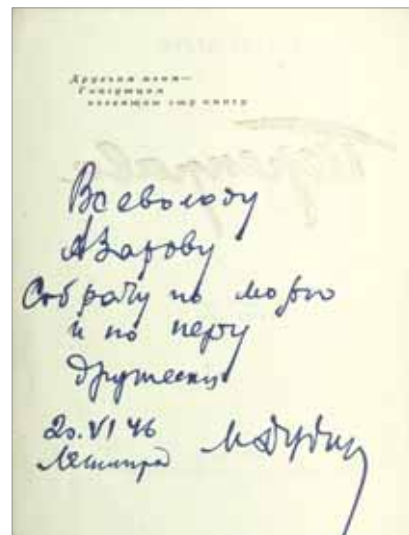 Друзьям моим —
Гангутцам
посвящаю эту книгу
Всеволоду
Азарову
Собрату по морю
и по перу
дружески
20.VI 46
Ленинград
М Дудин